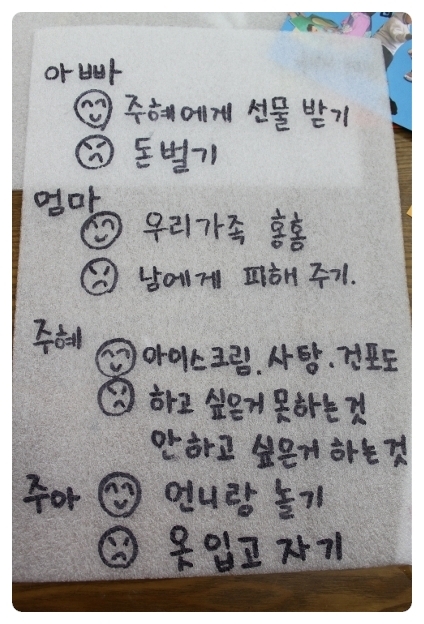 아빠
주혜에게 선물 받기
돈벌기
엄마
우리가족 홍홍
남에게 피해 주기.
주혜
아이스크림. 사탕. 건포도
하고 싶은거 못하는것
안하고 싶은거 하는것
주아
언니랑 놀기
옷입고 자기